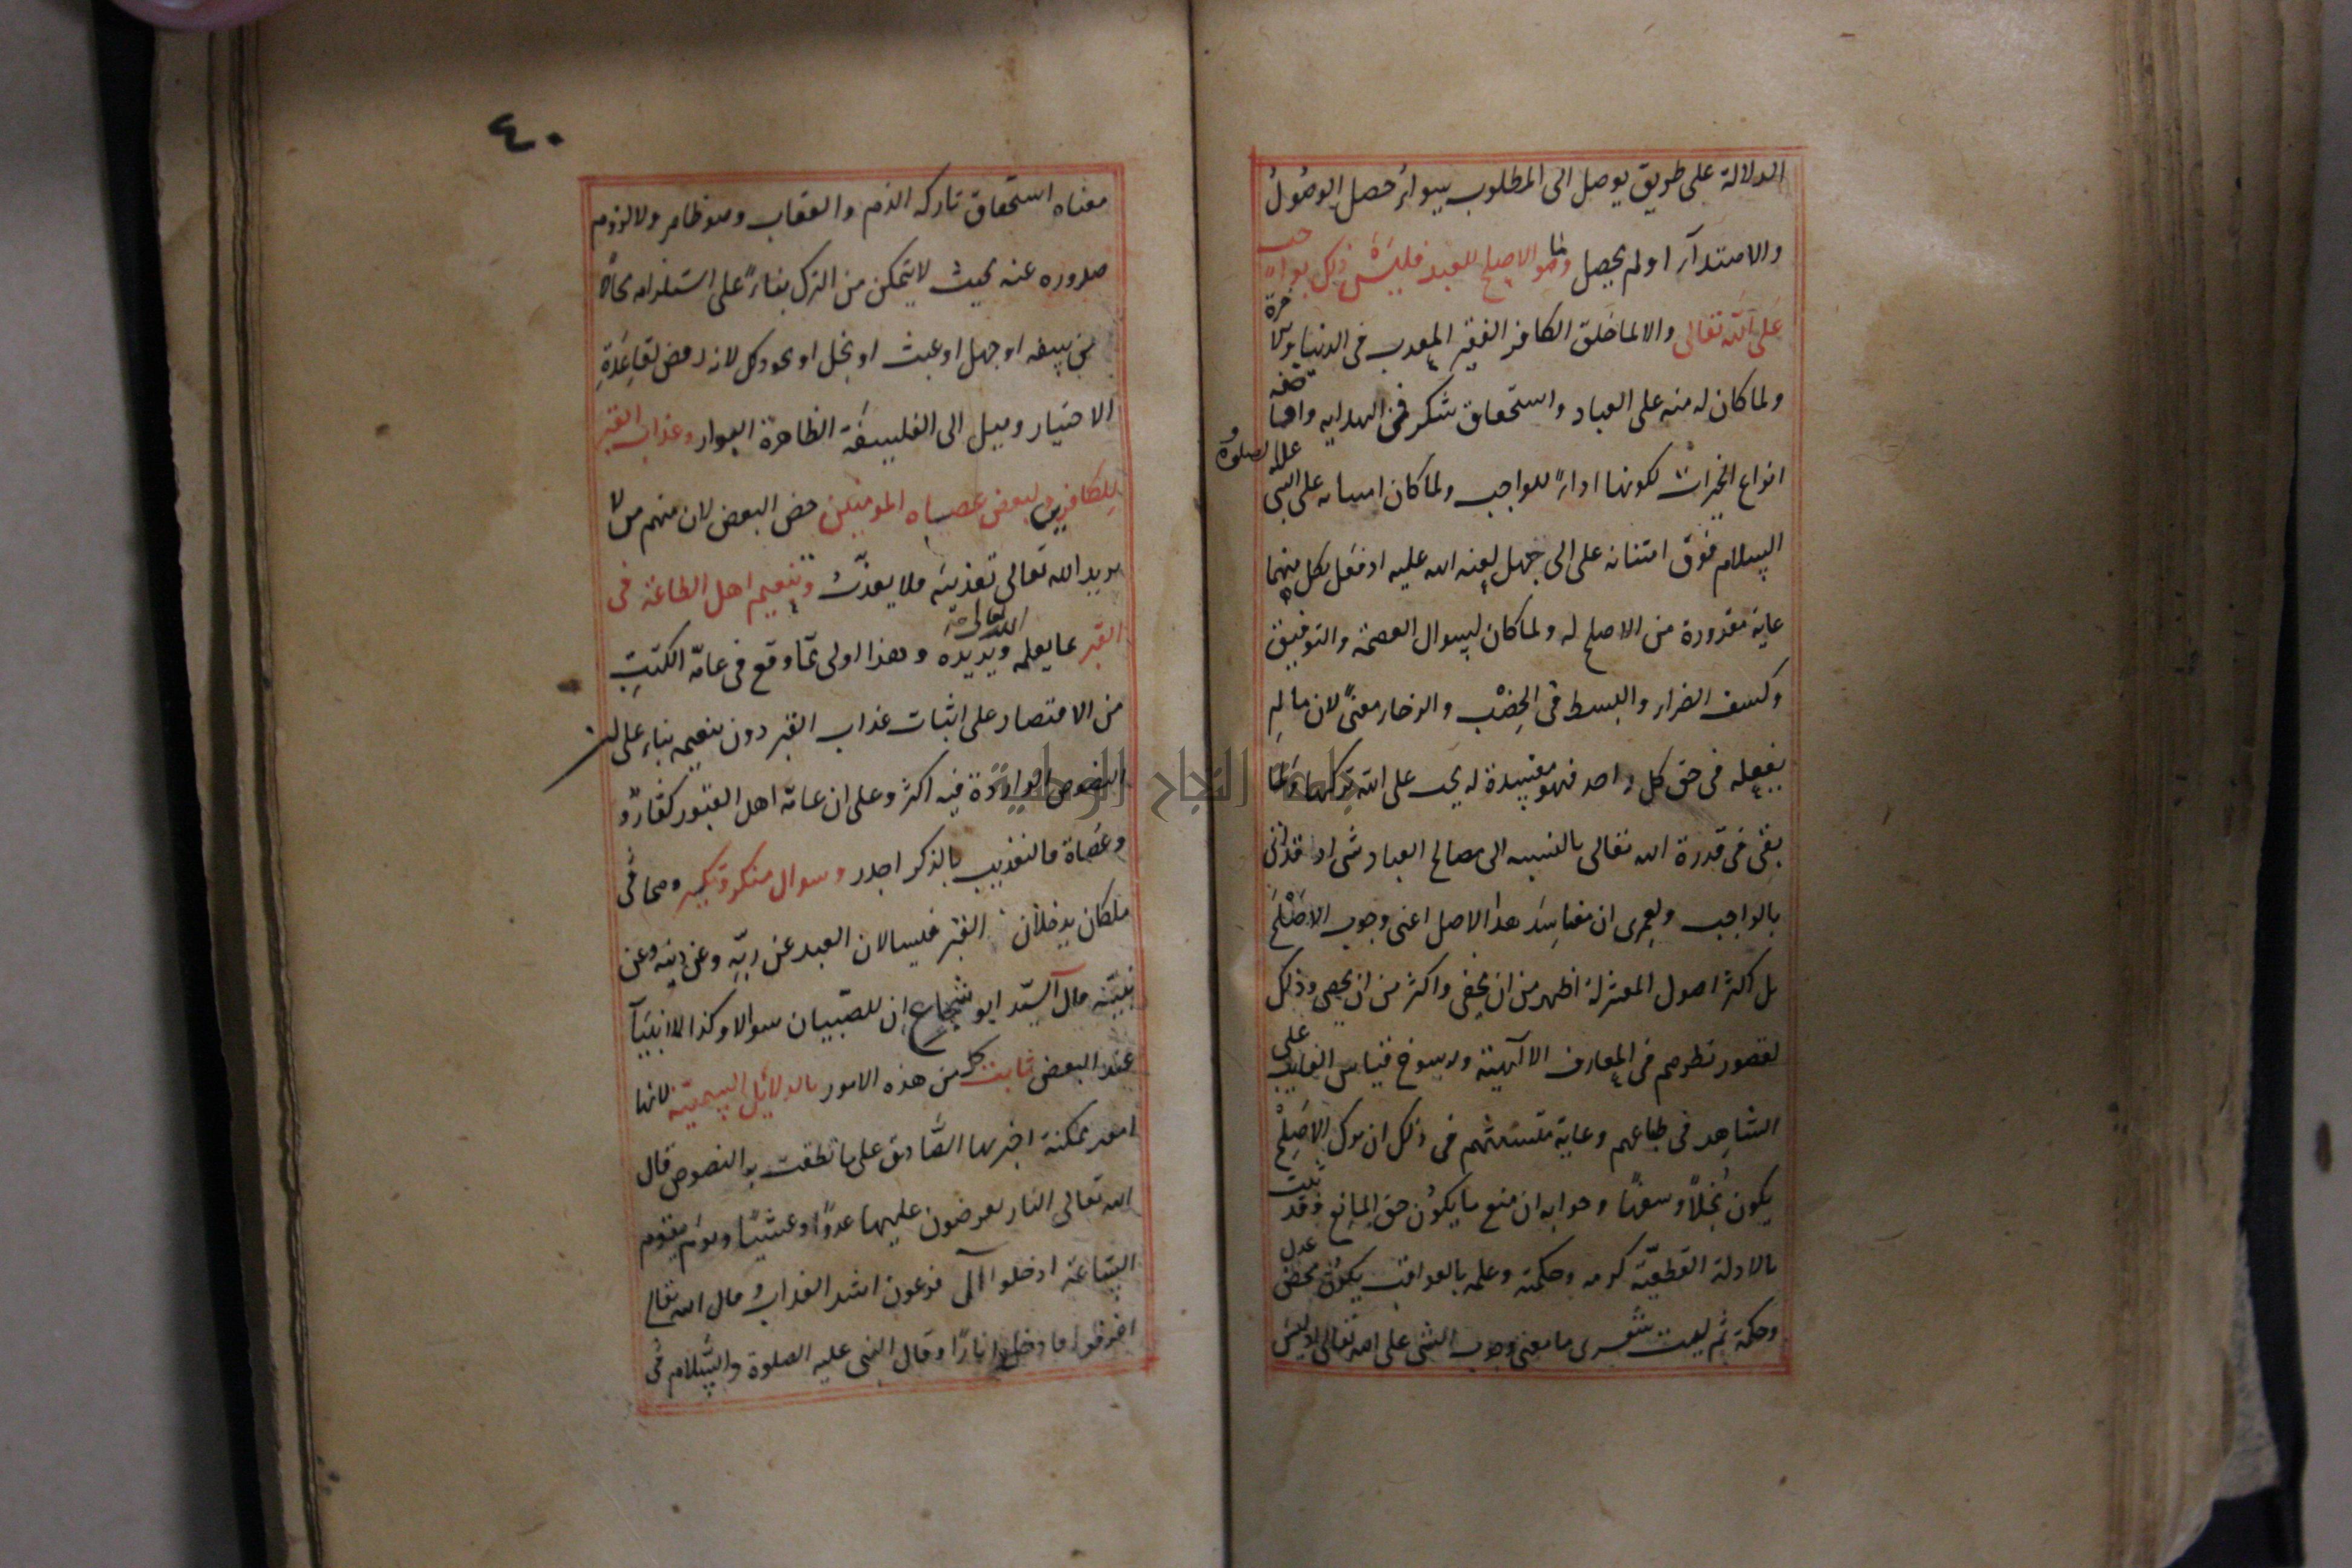 الدلالة على طريق يوصل الى المطلوب سواء حصل الوصول
والاهتداء او لم يحصل وما هو الاصلح للعبد فليس ذلك بواجب
على الله تعالى والا لما خلق الكافر الفقير المعذب فى الدنيا والاخرة
ولما كان له منة على العباد واستحقاق شكر فى الهداية وافاضة
انواع الخيرات لكونها اداء للواجب ولما كان امتنانه على النبى عليه الصلوة و
السلام فوق امتنانه على ابى جهل لعنه الله عليه اذ فعل بكل منهما
غاية مقدورة من الاصلح له ولما كان لسوال العصمة والتوفيق
وكشف الضراء والبسط فى الخصب والرخاء معنى لان ما لم
يفعله فى حق كل واحد فهو مفسدة له يجب على الله تركها ولما
بقى فى قدرة الله تعالى بالنسبه الى مصالح العباد شى اذ قد اتى
بالواجب ولعمرى ان مفاسد هذا الاصل اعنى وجوب الاصلح
بل اكثر اصول المعتزلة اظهر من ان يخفى واكثر من ان يحصى وذلك
لقصور نظرهم فى المعارف الالهية ورسوخ قياس الغايب على
الشاهد فى طباعهم وغاية متشبثهم فى ذلك ان ترك الاصلح
يكون بخلا وسفها وجوابه ان منع ما يكون حق المانع وقد ثبت
بالادلة القطعية كرمه وحكمته وعلمه بالعواقب يكون محض عدل
وحكمة ثم ليت شعرى ما معنى وجوب الشى على الله تعالى اذ ليس
٤٠
معناه استحقاق تاركه الذم والعقاب وهو ظاهر ولا لزوم
صدوره عنه بحيث لا يتمكن من الترك بناء على استلزامه محالا
من سفه او جهل او عبث او بخل او نحو ذلك لانه رفض لقاعدة
الاختيار وميل الى الفلسفة الظاهرة العوار وعذاب القبر
للكافرين ولبعض عصاه المومنين خص البعض لان منهم من لا
يريد الله تعالى تعذيبه فلا يعذب وتنعيم اهل الطاعة فى
القبر بما يعلمه الله تعالى ويريده وهذا اولى مما وقع فى عامة الكتب
من الاقتصار على اثبات عذاب القبر دون تنعيمه بناء على ان
النصوص الواردة فيه اكثر وعلى ان عامة اهل القبور كفار و
وعصاة فالتعذيب بالذكر اجدر وسوال منكر ونكير وهما فى
ملكان يدخلان القبر فيسالان العبد عن ربه وعن دينه وعن
نبيه قال السيد ابو شجاع ان للصبيان سوالا وكذا للانبيآ
عند البعض ثابت كل من هذه الامور بالدلائل السمعية لانها
امور ممكنة اخبر بها الصادق على ما نطقت به النصوص قال
الله تعالى النار يعرضون عليها غدوا وعشيا ويوم تقوم
الساعة ادخلوا آل فرعون اشد العذاب وقال الله تعالى
اغرقوا فادخلوا نارا وقال النبى عليه الصلوة والسلام فى
جامعة النجاح الوطنية